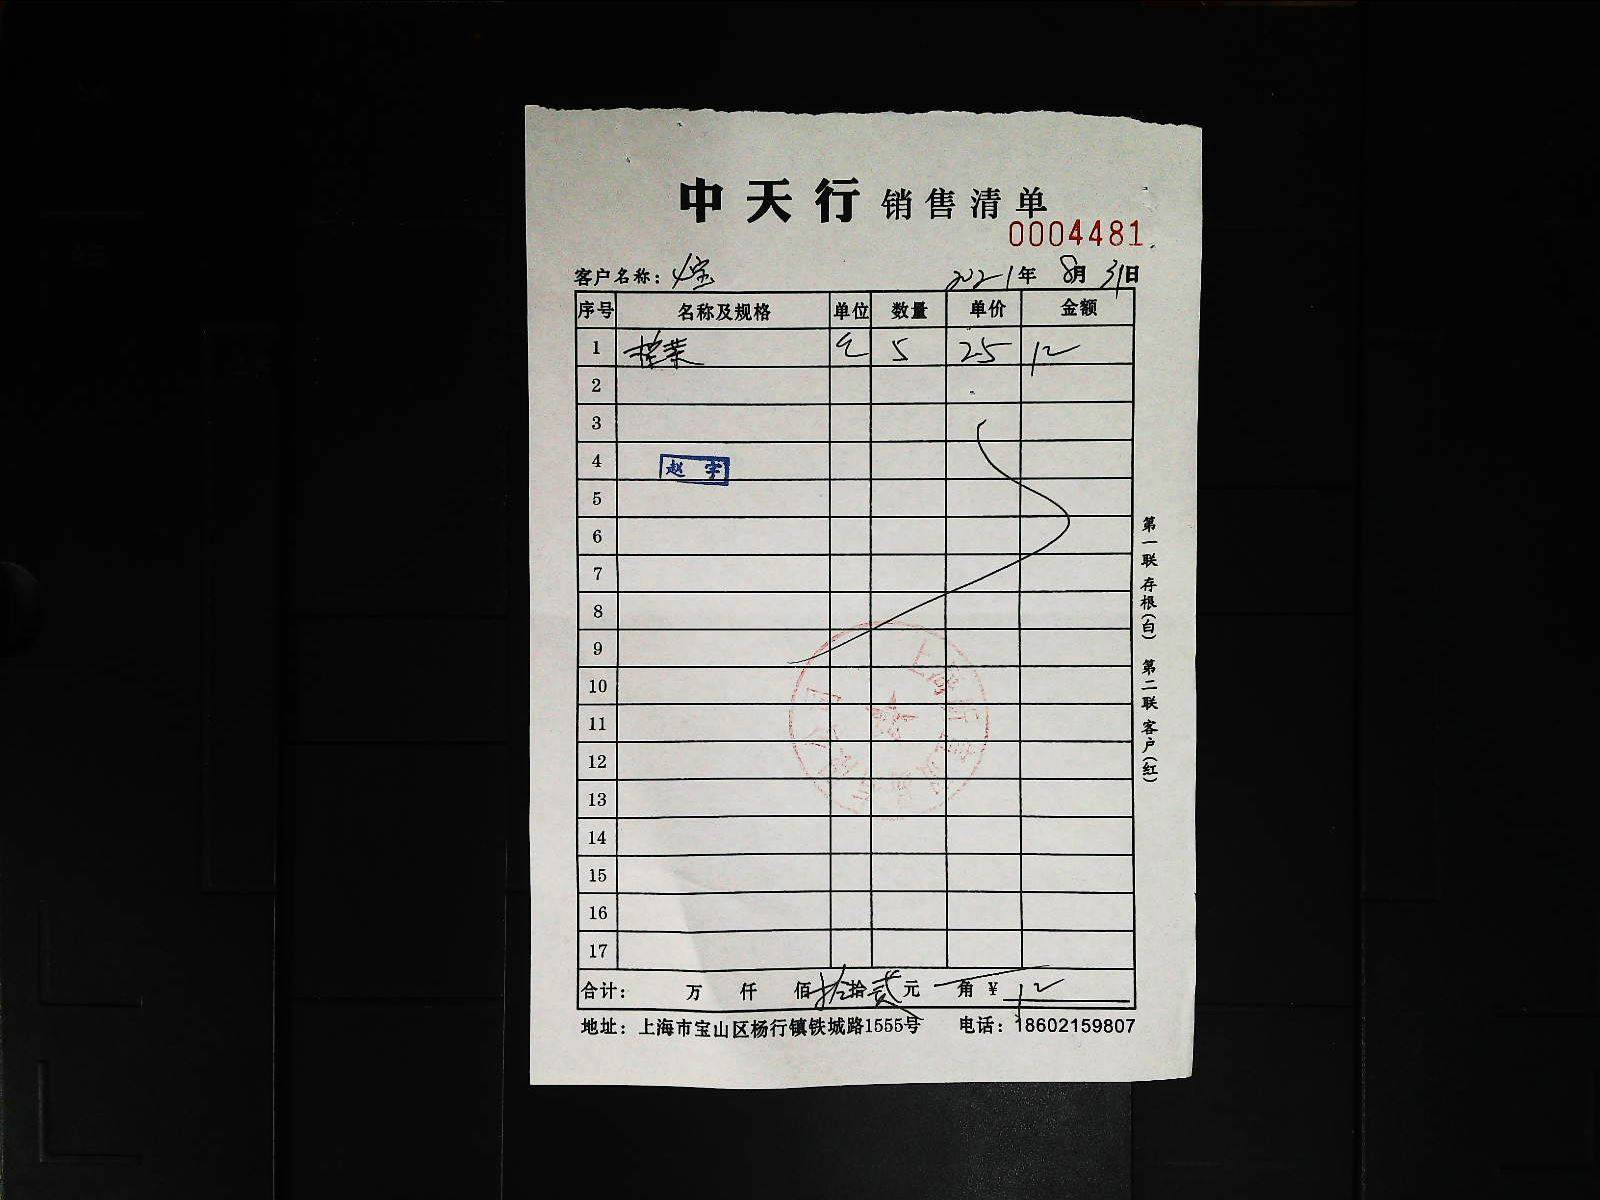 中天行 销售清单
0004481
客户名称：
2021年 8月 31日
序号 名称及规格 单位 数量 单价 金额
1 榨菜 5 25 12
2
3
4 赵宇
5
6
7
8
9
10
11
12
13
14
15
16
17
合计： 万 仟 佰 拾 贰元 角 ¥ 12
地址：上海市宝山区杨行镇铁城路1555号 电话：18602159807
第一联 存根（白） 第二联 客户（红）